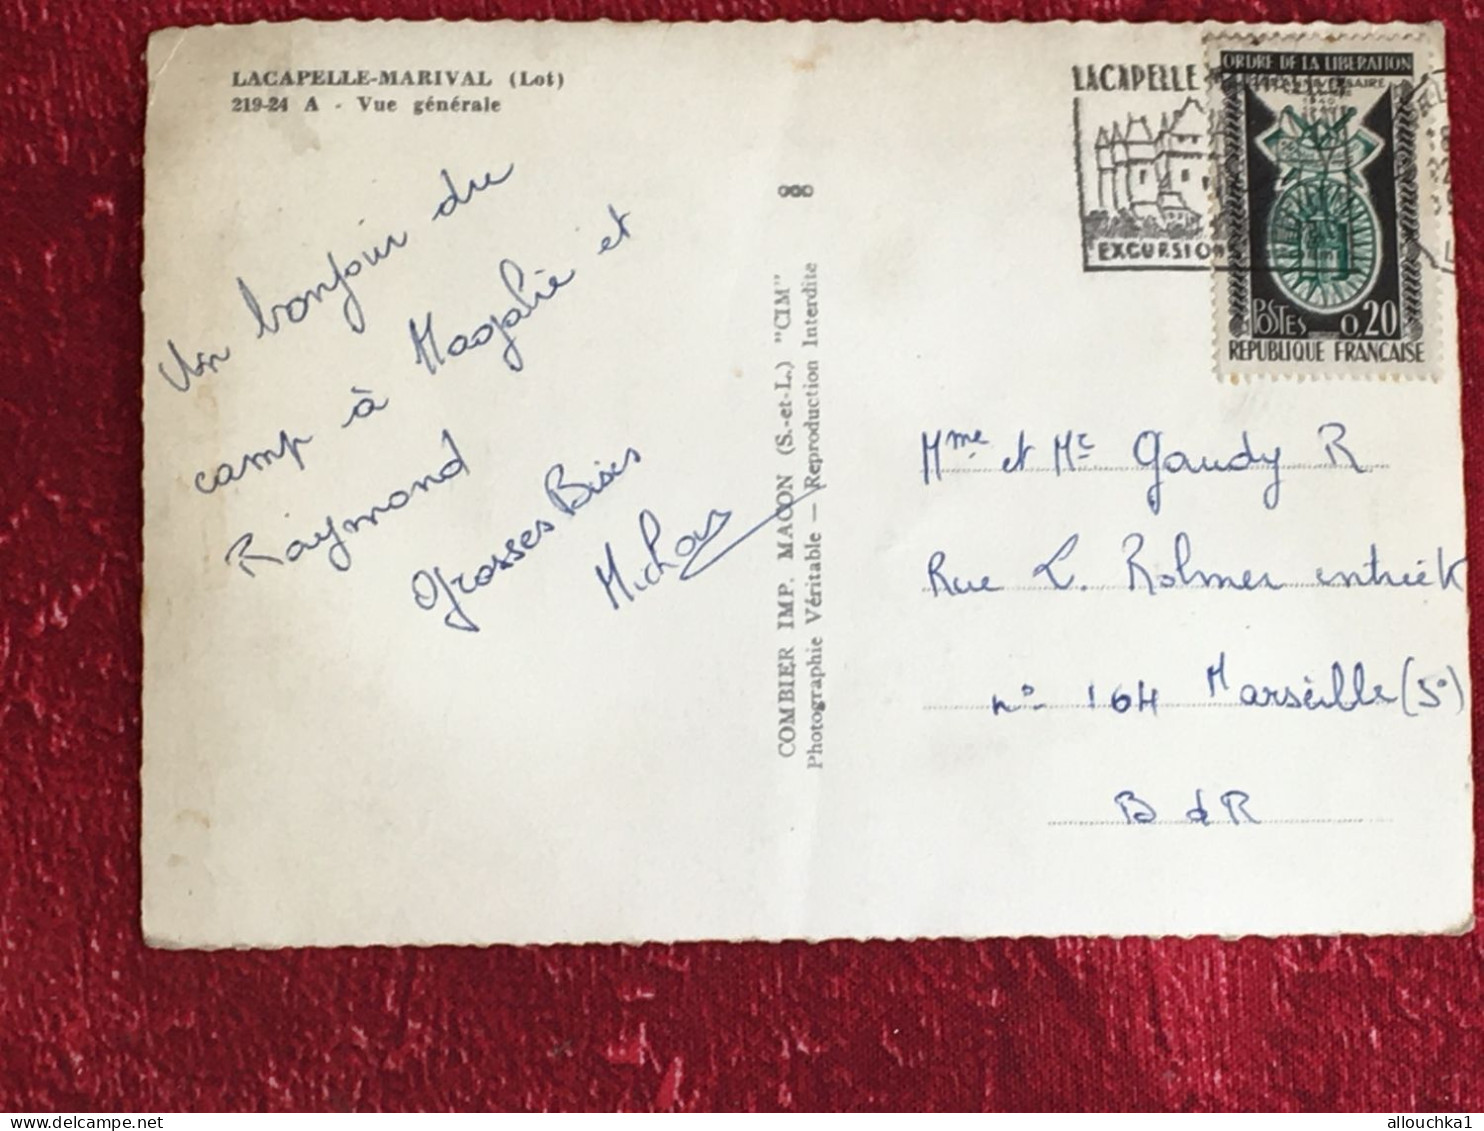 LACAPELLE-MARIVAL (Lot)
219-24 A - Vue générale
Un bonjour du
camp à Magalie et
Raymond
Grosses Bises
COMBIER IMP. MACON (S.-et-L.) "CIM"
Photographie Véritable — Reproduction Interdite
LACAPELLE
EXCURSION
ORDRE DE LA LIBERATION
POSTES 0,20
REPUBLIQUE FRANCAISE
Mme et Mr Gaudy R
Rue L. Rolmer
n° 164 Marseille (5°)
B d R
allouchka1